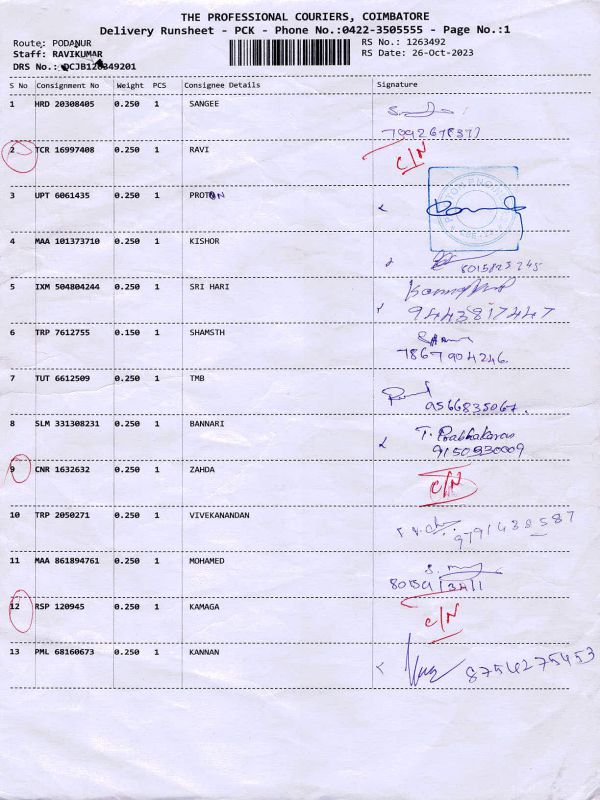 THE PROFESSIONAL COURIERS, COIMBATORE
Delivery Runsheet - PCK - Phone No.:0422-3505555 - Page No.:1
Route: PODANUR
RS No.: 1263492
Staff: RAVIKUMAR
RS Date: 26-Oct-2023
DRS No.:
S No Consignment No Weight PCS Consignee Details Signature
1 HRD 20308405 0.250 1 SANGEE
2 TCR 16997408 0.250 1 RAVI C/N
3 UPT 6061435 0.250 1 PROTON
4 MAA 101373710 0.250 1 KISHOR
8015823245
5 IXM 504804244 0.250 1 SRI HARI
9443817447
6 TRP 7612755 0.150 1 SHAMSTH
7867904246.
7 TUT 6612509 0.250 1 TMB
9566835067.
8 SLM 331308231 0.250 1 BANNARI T. Prabhakaran
9150530009
9 CNR 1632632 0.250 1 ZAHDA C/N
10 TRP 2050271 0.250 1 VIVEKANANDAN
9791438587
11 MAA 861894761 0.250 1 MOHAMED
12 RSP 120945 0.250 1 KAMAGA C/N
13 PML 68160673 0.250 1 KANNAN
8754275453